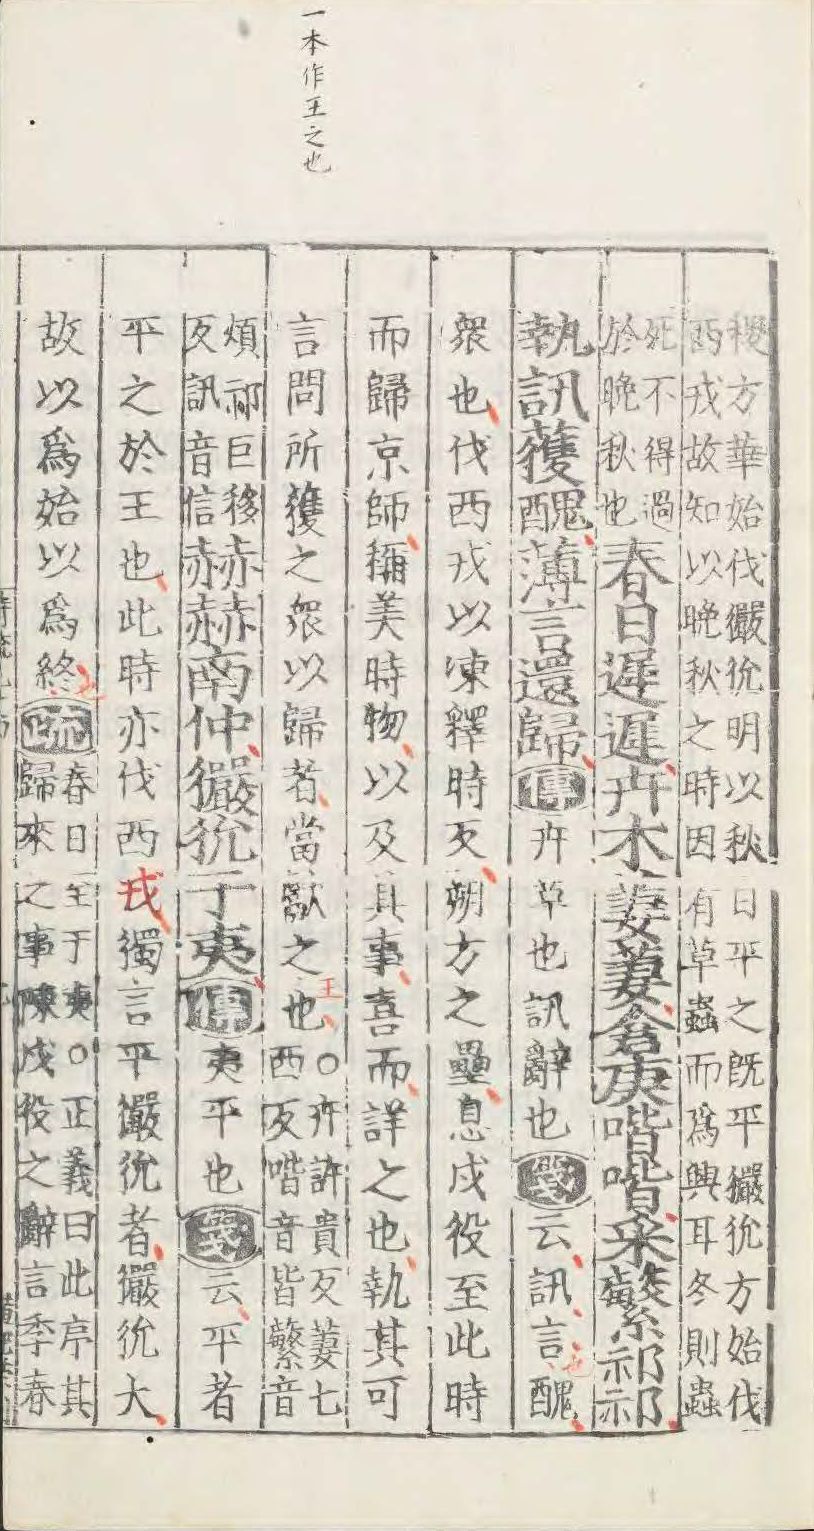 一本作王之也
稷方華始伐玁狁明以秋日平之既平玁狁方始伐
西戎故知以晚秋之時因有草蟲而爲興耳冬則蟲
死不得過
於晚秋也
春日遲遲卉木萋萋倉庚喈喈采蘩祁祁
執訊獲醜薄言還歸傳卉草也訊辭也箋云訊言也醜
衆也伐西戎以凍釋時反朔方之壘息戍役至此時
而歸京師稱美時物以及其事喜而詳之也執其可
言問所獲之衆以歸者當獻之王也
○卉許貴反萋七
西反喈音皆蘩音
煩祁巨移
反訊音信
赫赫南仲玁狁于夷傳夷平也箋云平者
平之於王也此時亦伐西戎獨言平玁狁者玁狁大
故以爲始以爲終疏
春日至于夷○正義曰此序其
歸來之事陳戍役之辭言季春